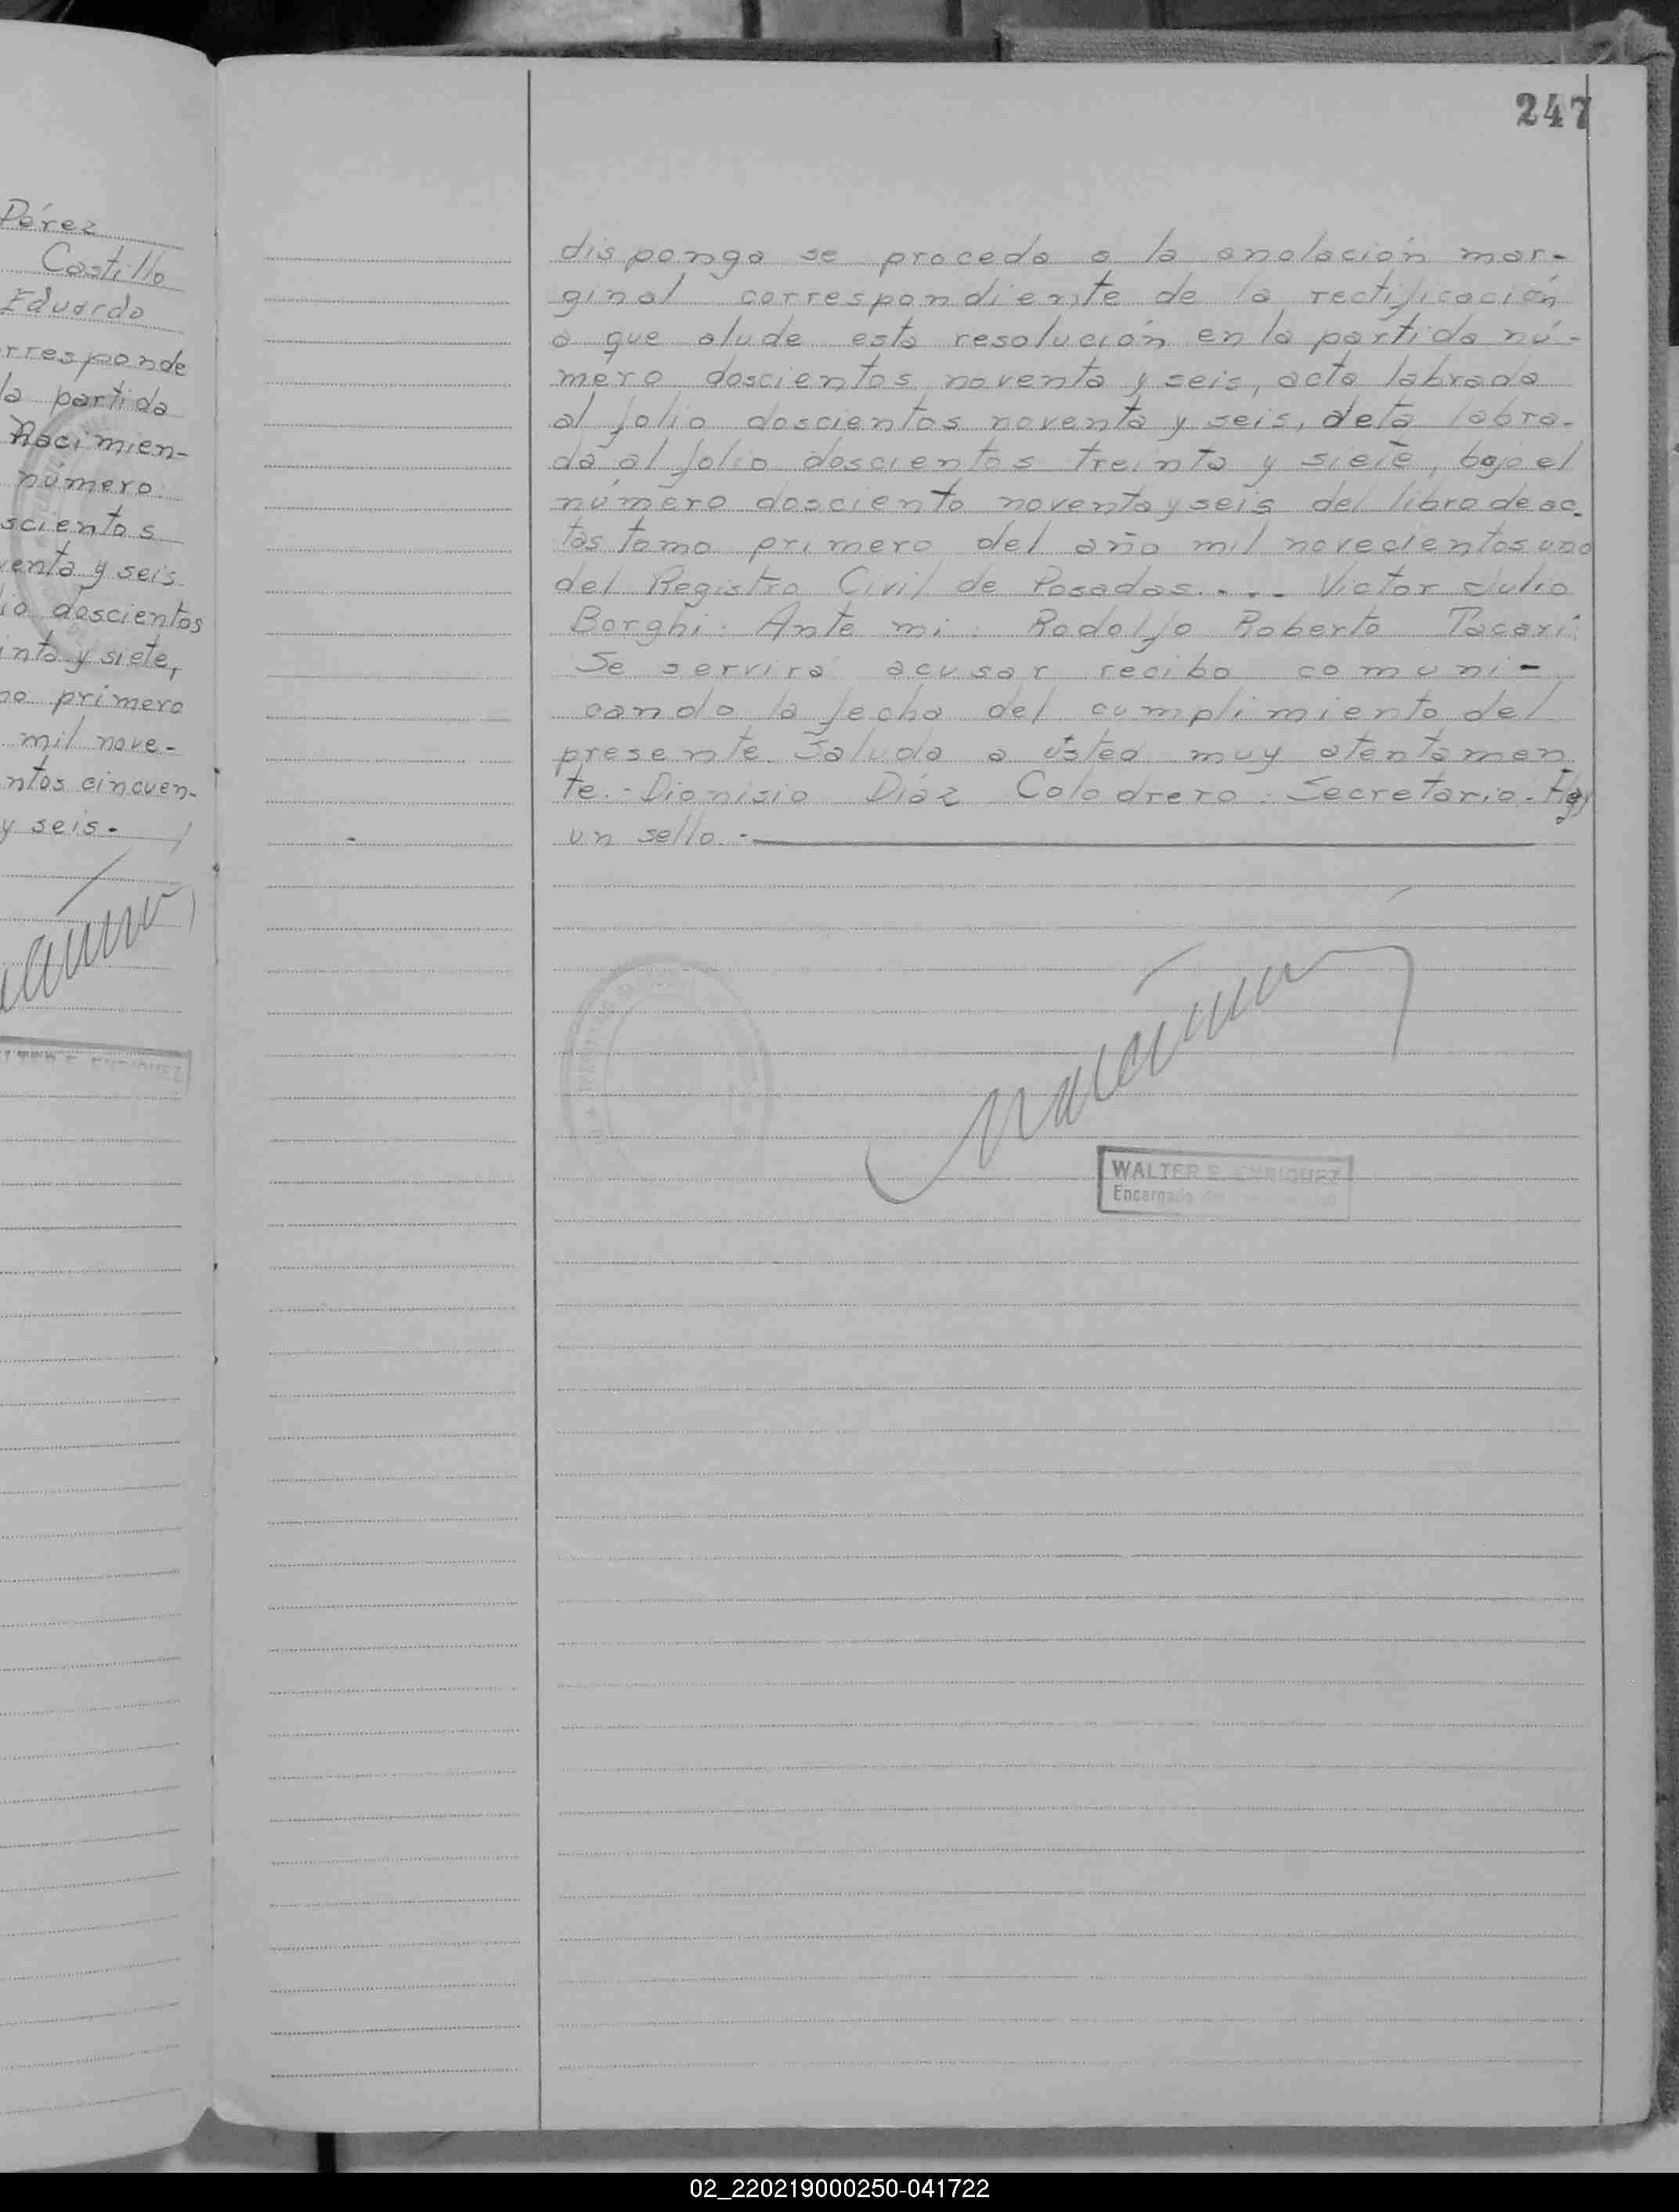 Pérez
Castillo
Eduardo
rresponde
la partida
Nacimien-
número
scientos
venta y seis
io doscientos
inta y siete,
mo primero
mil nove-
ntos cincuen-
y seis.-
247
disponga se proceda a la anotación mar-
ginal correspondiente de la rectificación
a que alude esta resolución en la partida nú-
mero doscientos noventa y seis, acta labrada
al folio doscientos noventa y seis, deta labra-
da al folio doscientos treinta y siete, bajo el
número dosciento noventa y seis del libro de ac-
tas tomo primero del año mil novecientos uno
del Registro Civil de Posadas.... Victor Julio
Borghi. Ante mi: Rodolfo Roberto Pacari.
Se servirá acusar recibo comuni-
cando la fecha del cumplimiento del
presente. Saluda a usted muy atentamen
te.- Dionisio Díaz Colodrero. Secretario. Hay
un sello.-
WALTER E. ENRIQUEZ
Encargado
02_220219000250-041722